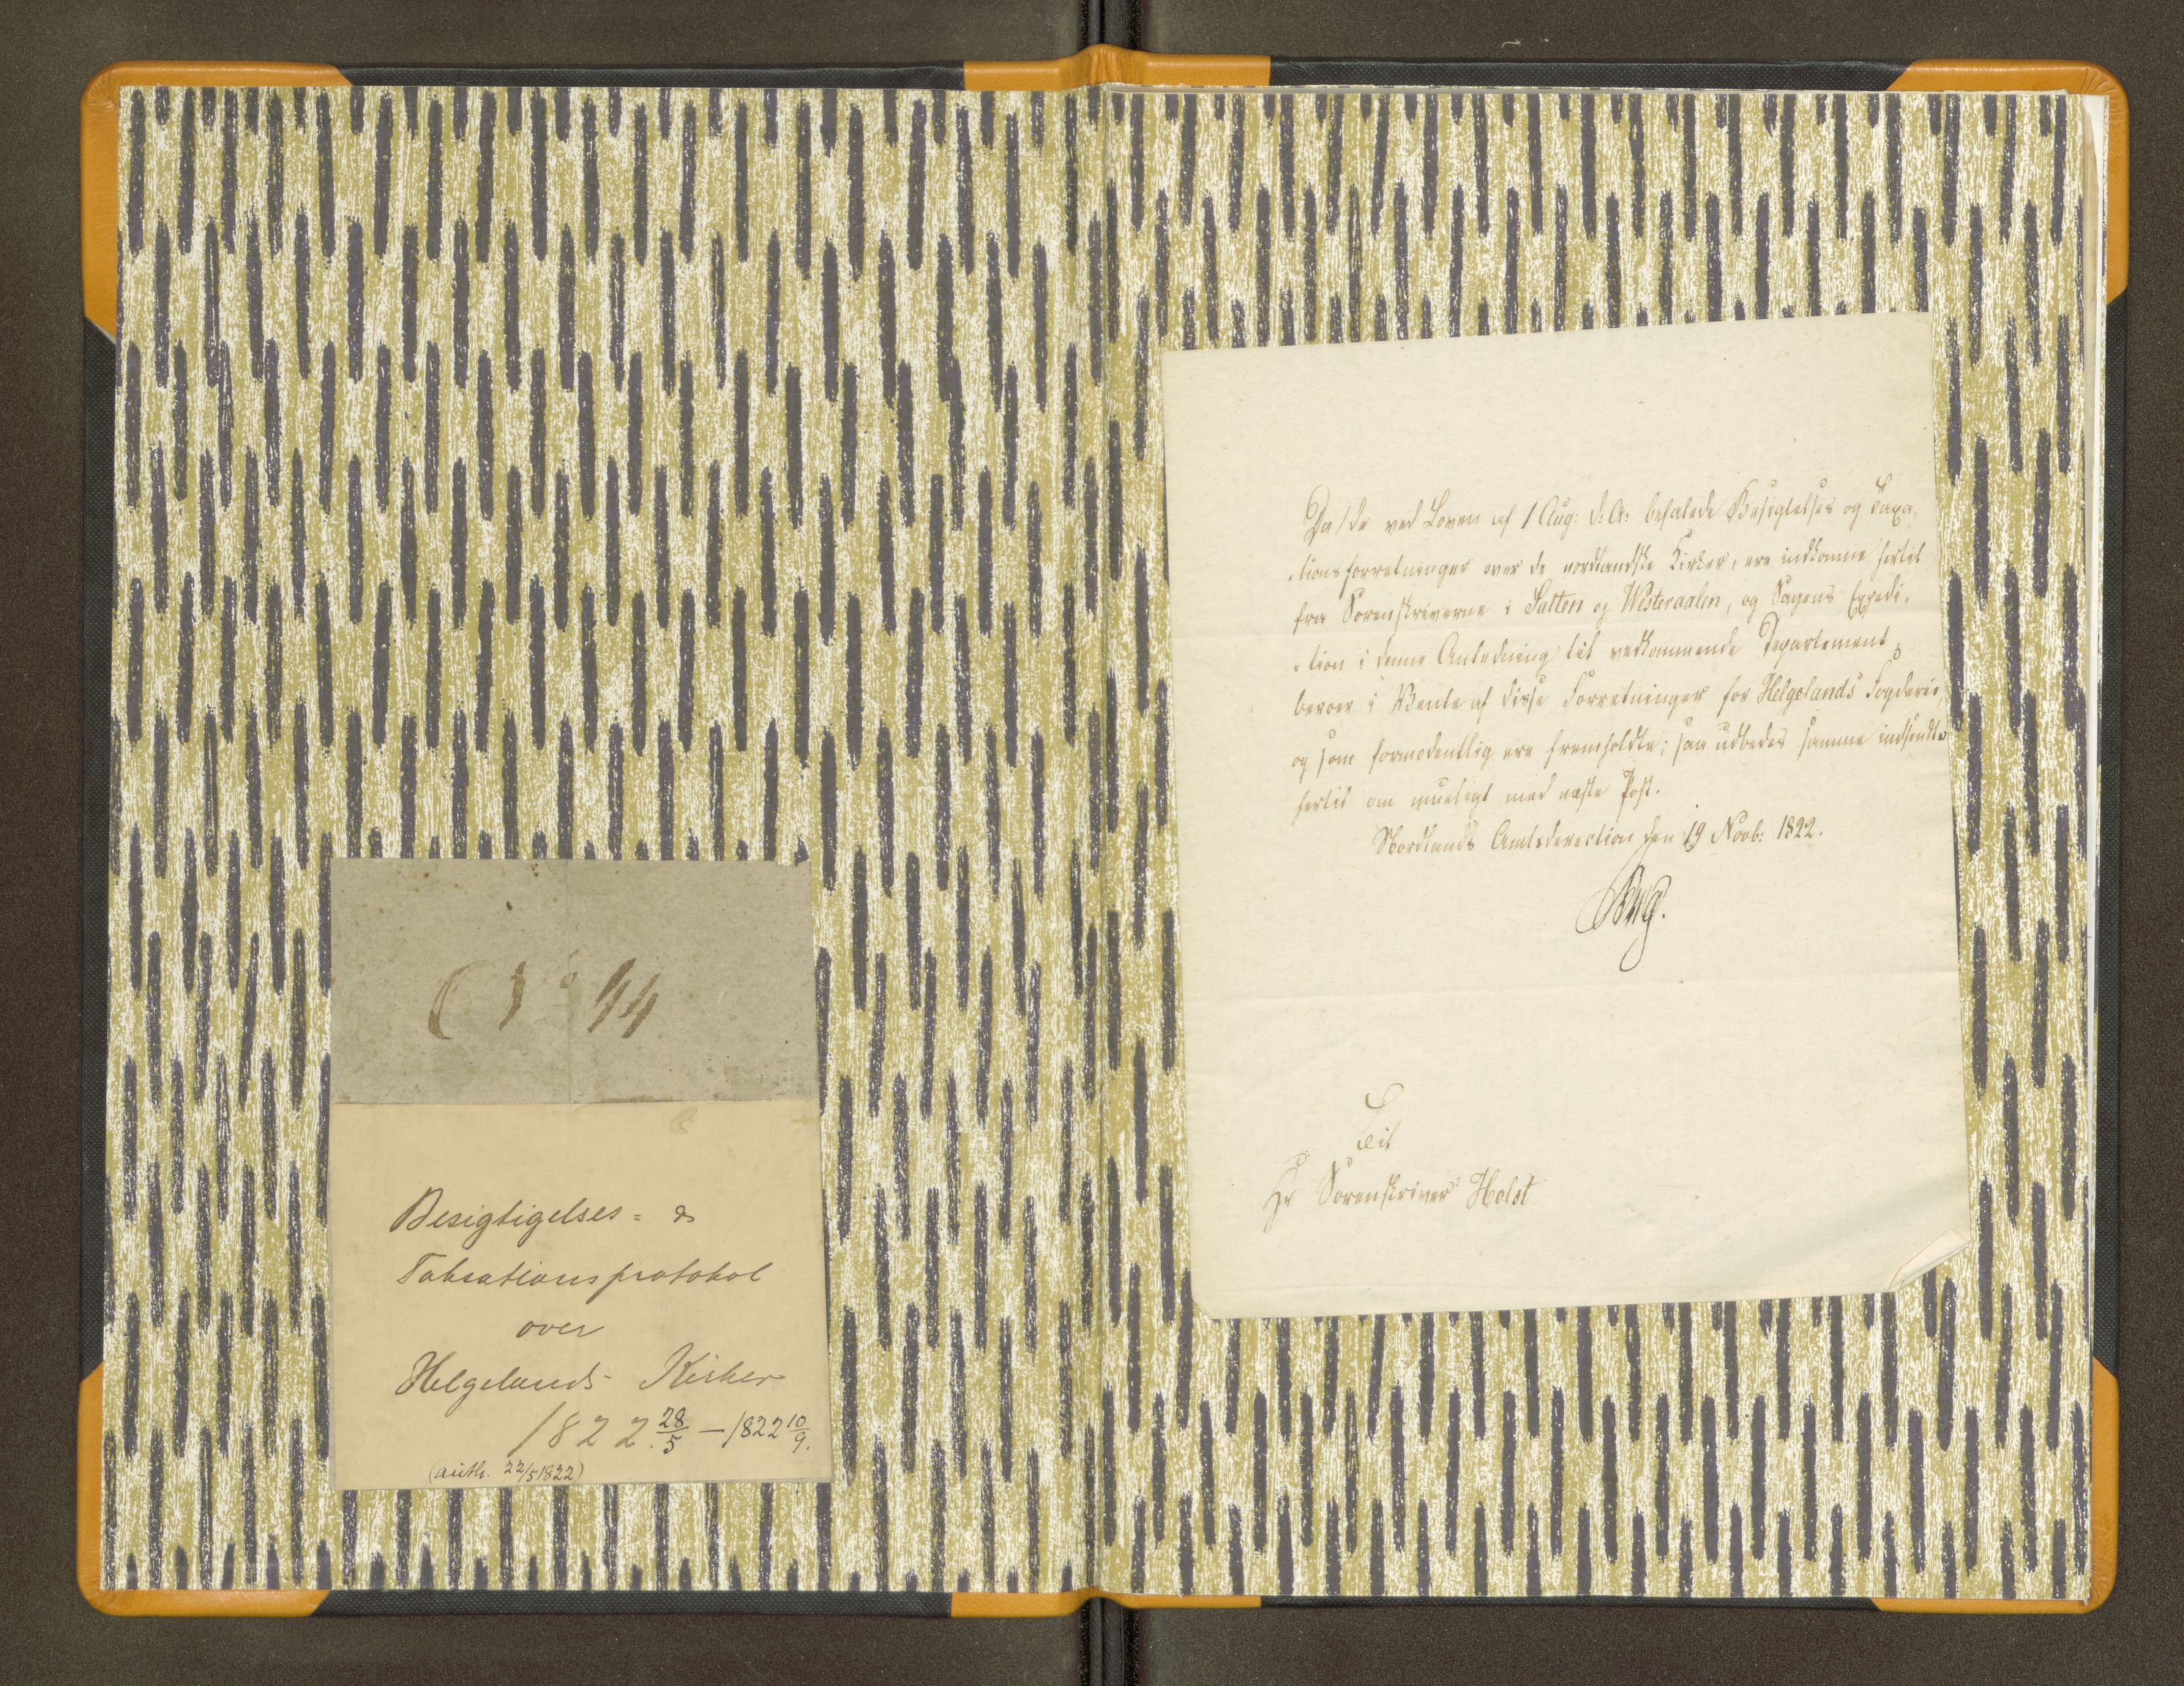 No 44
Besigtigelses= &
Taksationsprotokol
over
Helgelands Kirker
1822 28/5 – 1822 10/9.
(auth. 22/5 1822)
Da de ved Loven af 1 Aug: d: A: befalede Besigtelses og Taxa-
-tionsforretninger over de nordlandske Kirker, ere indkomne hertil
fra Sorenskriverne i Salten og Westeraalen, og Sagens Expedi-
-tion i denne Anledning til vedkommende Departement
beroer i Vente af disse Forretninger for Helgelands Fogderie,
og som formodentlig ere fremholdte; saa udbedes samme indsendte
hertil om mueligt med næste Post.
Nordlands Amt den 19 Novb: 1822.
Til
Hr Sorenskriver Holst